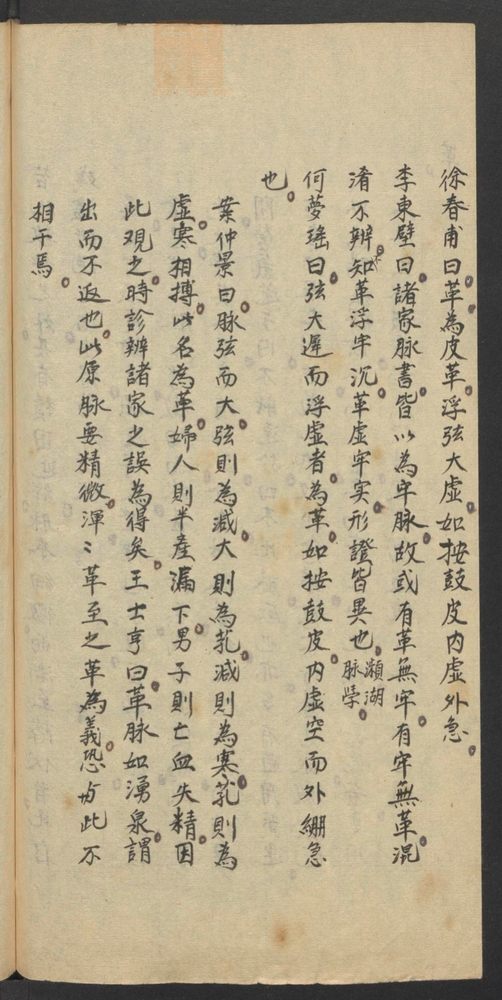 徐春甫曰革為皮革浮弦大虛如按鼓皮内虛外急
李東壁曰諸家脉書皆以為牢脉故或有革無牢有牢無革混
淆不辨不知革浮牢沉革虛牢实形證皆異也瀕湖脉學
何夢瑤曰弦大遲而浮虛者為革如按鼓皮内虛空而外綳急
也
案仲景曰脉弦而大弦則為減大則為芤減則為寒芤則為
虛寒相搏此名為革婦人則半産漏下男子則亡血失精因
此观之時診辨諸家之誤為得矣王士亨曰革脉如湧泉謂
出而不返也此原脉要精微渾〻革至之革為義恐与此不
相干焉